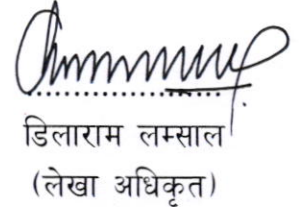 डिलाराम लम्साल
(लेखा अधिकृत)